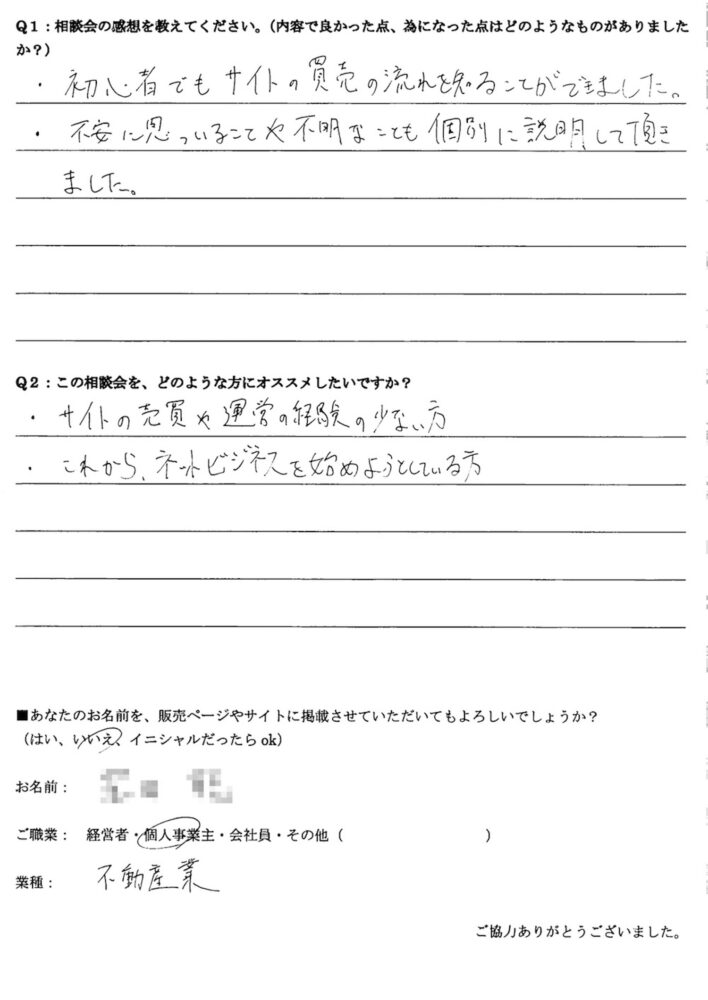 Q1：相談会の感想を教えてください。（内容で良かった点、為になった点はどのようなものがありました
か？）
・初心者でもサイトの買売の流れを知ることができました。
・不安に思っていることや不明なことも個別に説明して頂き
ました。
Q2：この相談会を、どのような方にオススメしたいですか？
・サイトの売買や運営の経験の少ない方
・これから、ネットビジネスを始めようとしている方
■あなたのお名前を、販売ページやサイトに掲載させていただいてもよろしいでしょうか？
（はい、いいえ、イニシャルだったら ok）
お名前：
ご職業： 経営者・個人事業主・会社員・その他（ ）
業種： 不動産業
ご協力ありがとうございました。